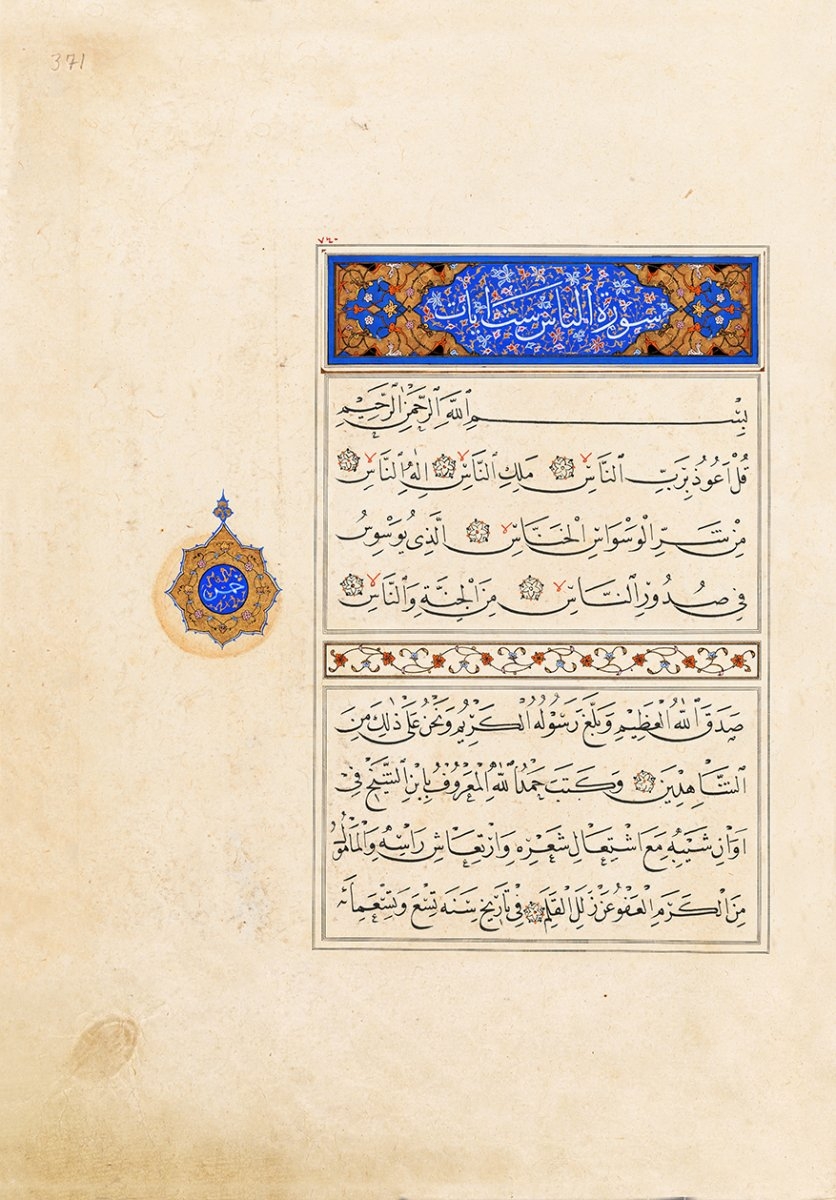 371
سورة الناس ست ايات
بِسْمِ اللَّهِ الرَّحْمٰنِ الرَّحِيمِ
قُلْ اَعُوذُ بِرَبِّ النَّاسِ مَلِكِ النَّاسِ اِلٰهِ النَّاسِ
مِنْ شَرِّ الْوَسْوَاسِ الْخَنَّاسِ الَّذِى يُوَسْوِسُ
فِى صُدُورِ النَّاسِ مِنَ الْجِنَّةِ وَالنَّاسِ
خمس
صَدَقَ اللَّهُ الْعَظِيمِ وَبَلَّغَ رَسُولُهُ الْكَرِيمُ وَنَحْنُ عَلَى ذٰلِكَ مِنَ
الشَّاهِدِينَ وَكَتَبَ حَمْدُ اللَّهِ الْمَعْرُوفُ بِابْنِ الشَّيْخِ فِى
اَوَانِ شَيْبِهِ مَعَ اشْتِعَالِ شَعْرِهِ وَارْتِعَاشِ رَاسِهِ وَالْمَأْمُولُ
مِنَ الْكَرَمِ الْعَفْوُ عَنْ زَلَلِ الْقَلَمِ فِى تَارِيخِ سَنَه تِسْعَ وَتِسْعَمِائَه